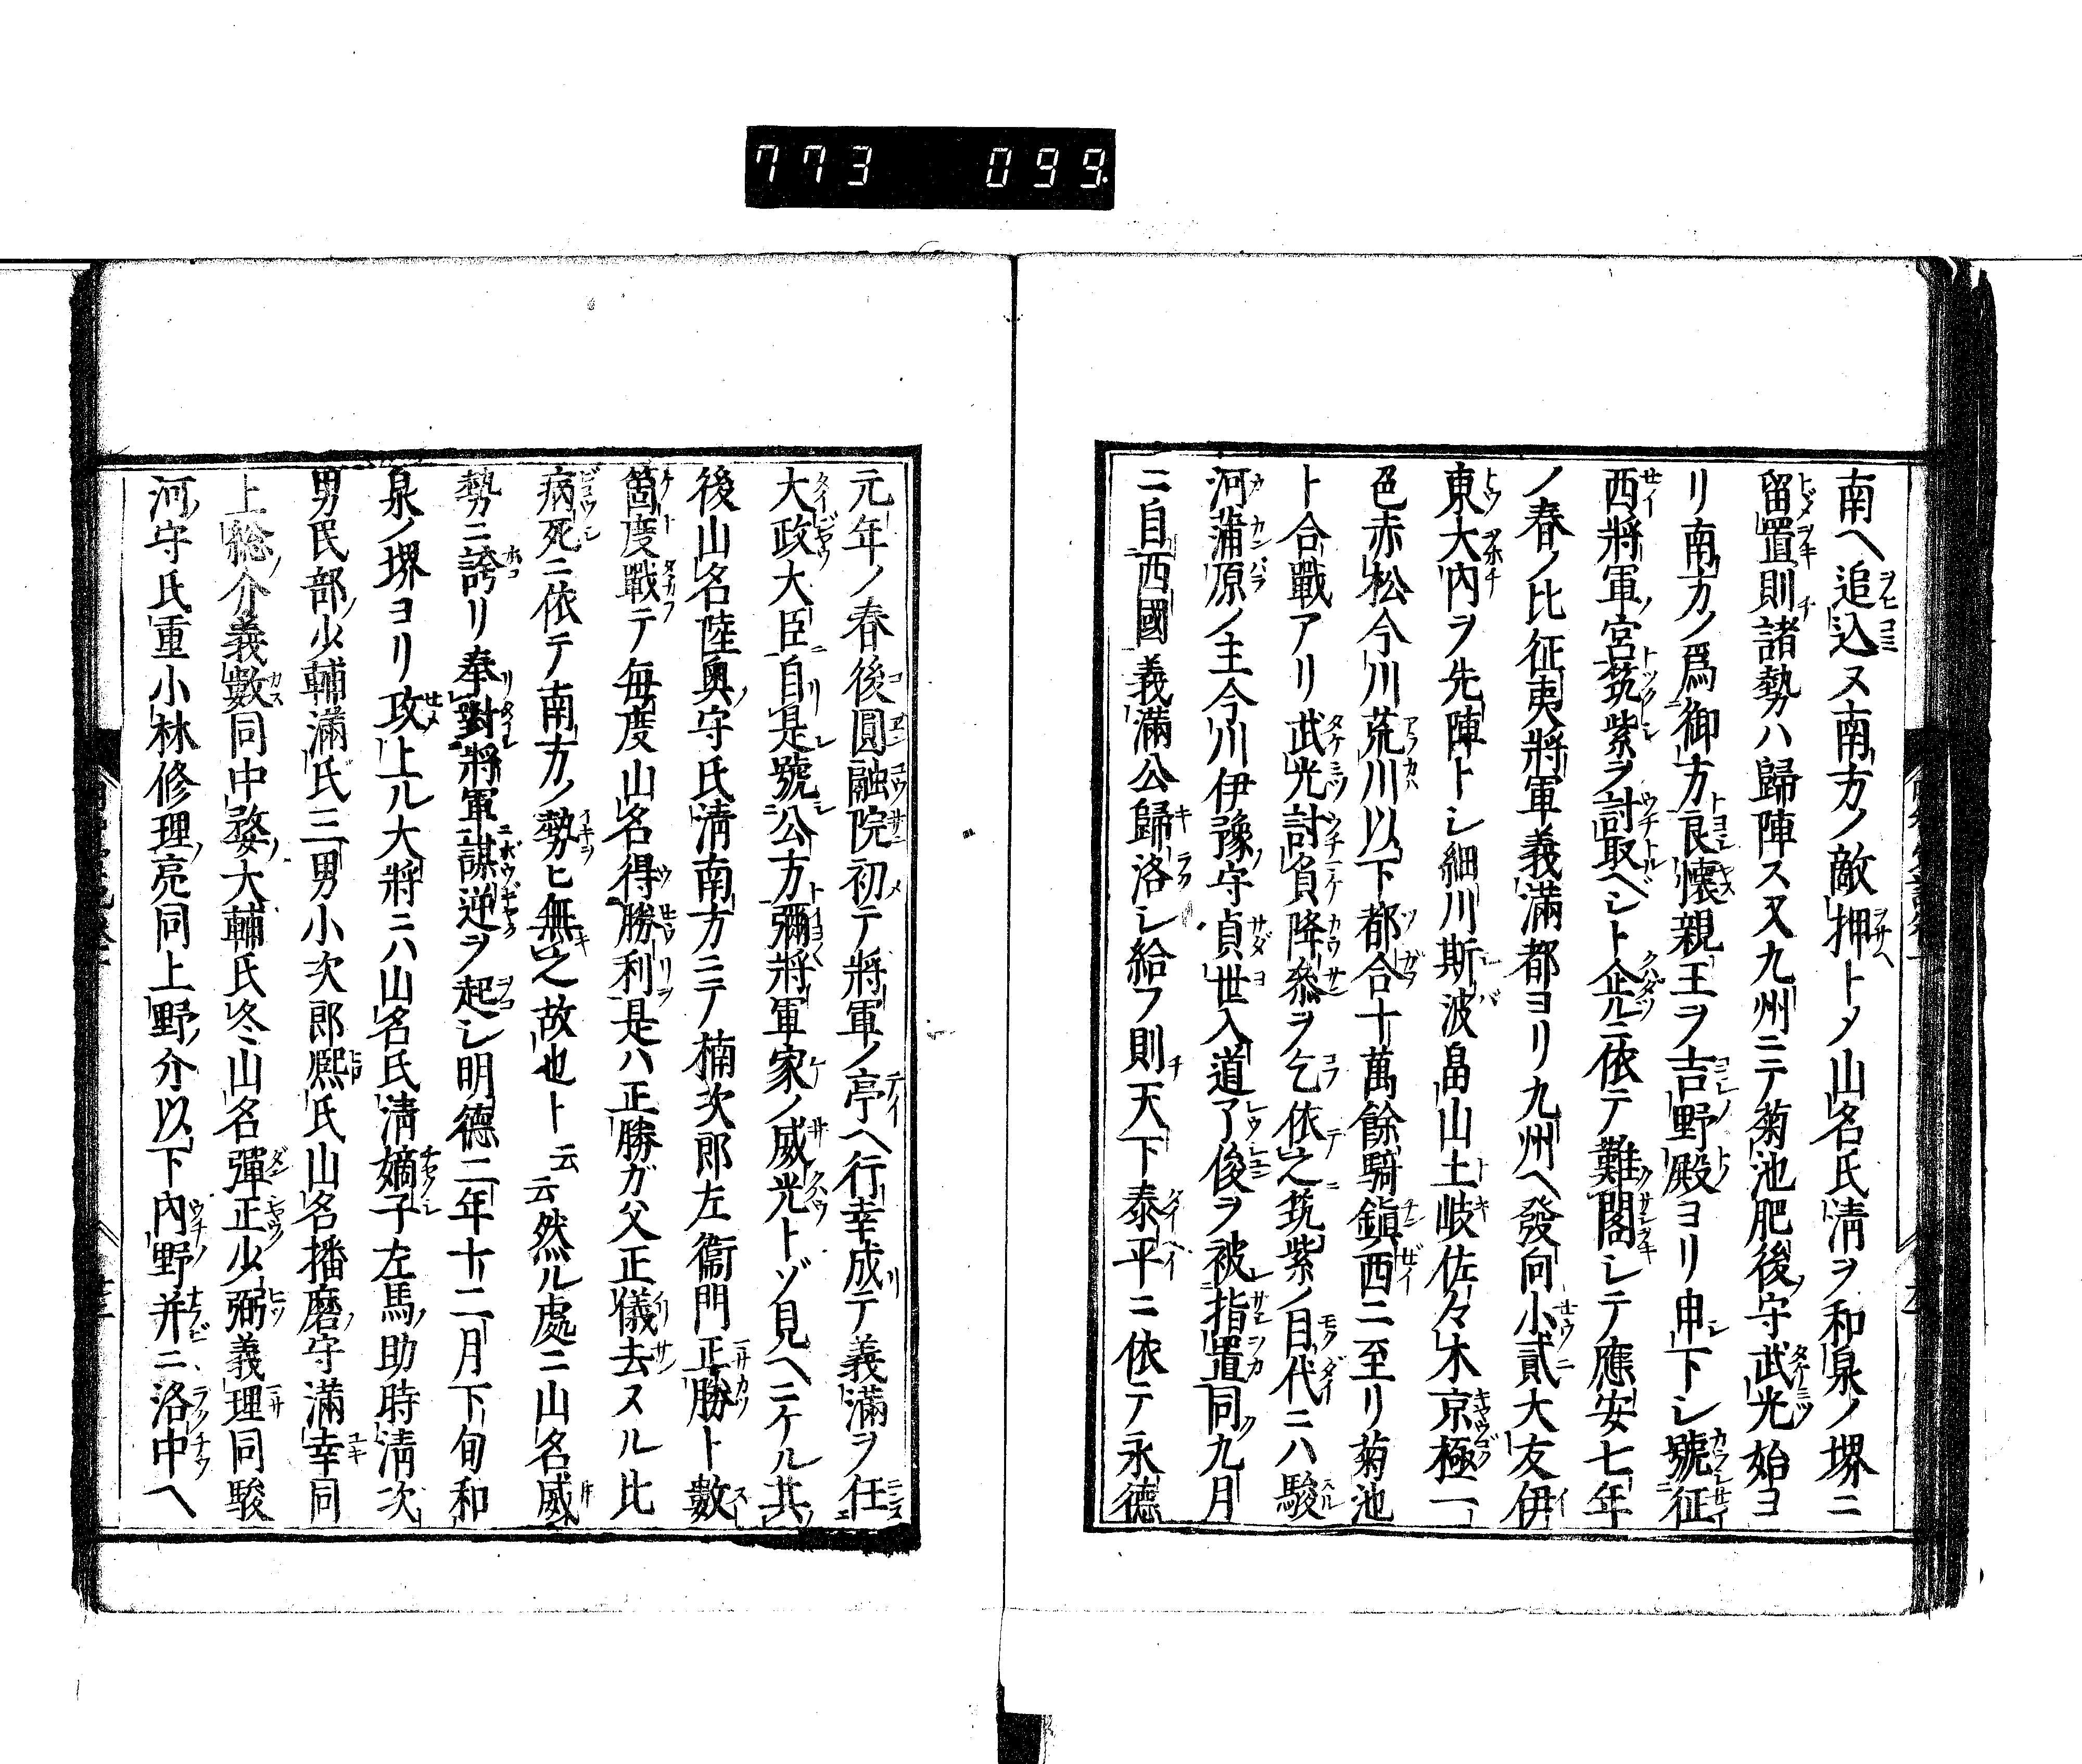 773 099
南ヘ追込ヌ南方ノ敵押トメ山名氏淸ヲ和泉ノ堺ニ
留置則諸勢ハ歸陣ス又九州ニテ菊池肥後守武光始ヨ
リ南方ノ爲御方良懷親王ヲ吉野殿ヨリ申下シ號征
西將軍宮筑紫ヲ討取ベシト企ルニ依テ難閣シテ應安七年
ノ春ノ比征夷將軍義滿都ヨリ九州ヘ發向小貳大友伊
東大內ヲ先陣トシ細川斯波畠山土岐佐々木京極一
色赤松今川荒川以下都合十萬餘騎鎭西ニ至リ菊池
ト合戰アリ武光討負降參ヲ乞依之筑紫ノ目代ニハ駿
河蒲原ノ主今川伊豫守貞世入道了俊ヲ被指置同九月
ニ自西國義滿公歸洛シ給フ則天下泰平ニ依テ永德
元年ノ春後圓融院初テ將軍ノ亭ヘ行幸成テ義滿ヲ任
大政大臣自是號公方彌將軍家ノ威光トゾ見ヘニケル其
後山名陸奧守氏淸南方ニテ楠次郎左衞門正勝ト數
箇度戰テ每度山名得勝利是ハ正勝ガ父正儀去ヌル比
病死ニ依テ南方ノ勢ヒ無之故也ト云云然ル處ニ山名威
勢ニ誇リ奉對將軍謀逆ヲ起シ明德二年十二月下旬和
泉ノ堺ヨリ攻上ル大將ニハ山名氏淸嫡子左馬助時淸次
男民部少輔滿氏三男小次郎熈氏山名播磨守滿幸同
上総介義數同中務大輔氏冬山名彈正少弼義理同駿
河守氏重小林修理亮同上野介以下內野并ニ洛中ヘ